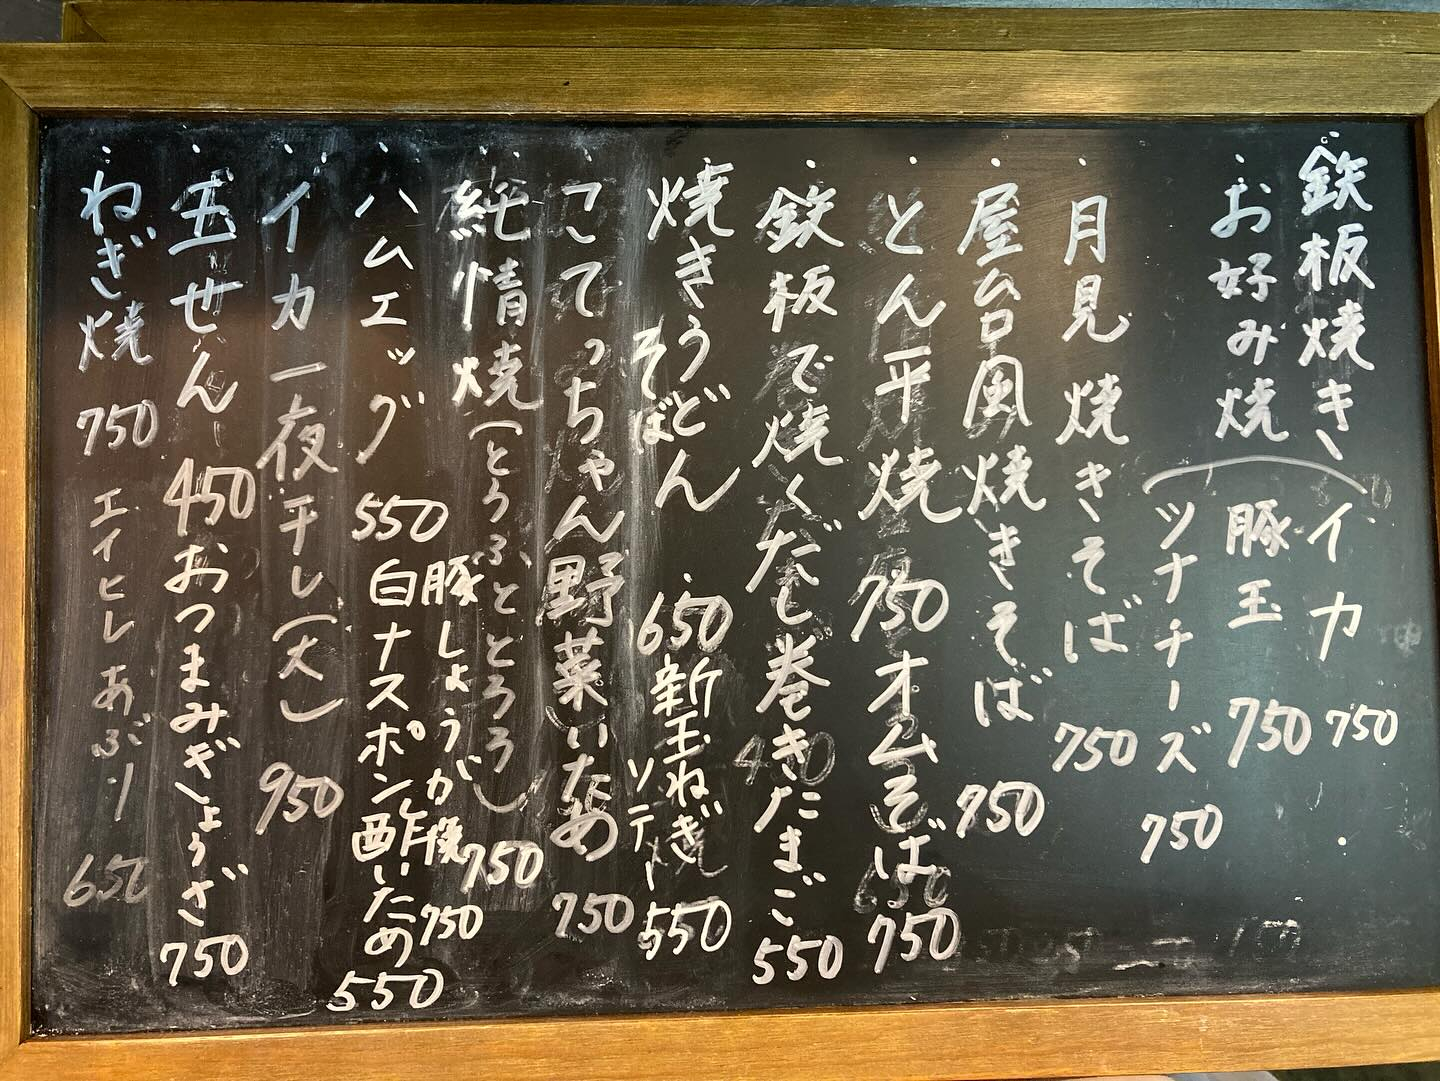 鉄板焼き
お好み焼
イカ 750
豚玉 750
ツナチーズ 750
月見焼きそば 750
屋台風焼きそば 750
とん平焼 750
オムそば 750
鉄板で焼くだし巻きたまご 550
焼きうどん
そば 650
新玉ねぎ
ソテー 550
こてっちゃん野菜いため 750
純情焼(とうふととろろ) 750
豚しょうが焼 750
ハムエッグ 550
白ナスポン酢いため 550
イカ一夜干し(大) 950
玉せん 450
おつまみぎょうざ 750
ねぎ焼 750
エイヒレあぶり 650